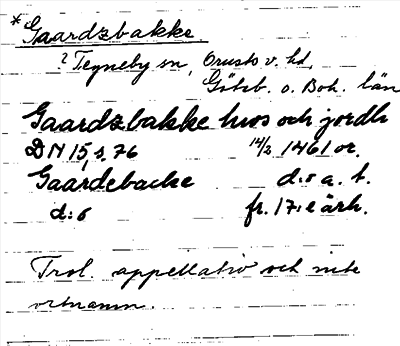 *Gaardzbakke
? Tegneby sn, Orusts v. hd,
Göteb. o. Boh. län
Gaardzbakke hws och jordh
DN 15, s. 76 14/2 1461 or.
Gaardebacke d:o a. t.
d:o fr. 17:e årh.
Trol. appellativ och inte
ortnamn.